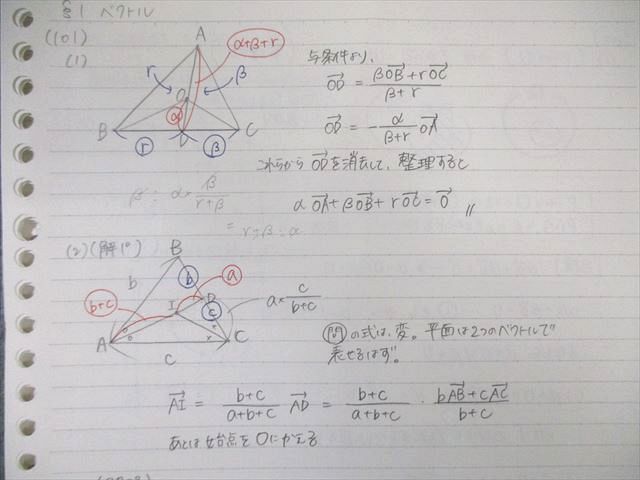 §1 ベクトル
(101)
(1)
A
α+β+r
r
β
O
α
B
D
C
r
β
与条件より、
OD→ = (βOB→ + rOC→)/(β+r)
OD→ = -α/(β+r) OA→
これらから OD→を消去して、整理すると
αOA→ + βOB→ + rOC→ = 0→ 〃
β : α × β/(r+β)
= r+β : α
(2)(解1°)
B
b
b
a
b+c
I
D
c
a× c/(b+c)
A
C
c
問の式は、変。平面は2つのベクトルで
表せるはず。
AI→ = (b+c)/(a+b+c) AD→ = (b+c)/(a+b+c) · (bAB→ + cAC→)/(b+c)
あとは始点をOにかえる